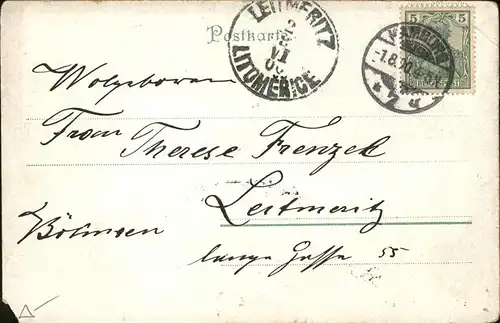 Postkarte
LEITMERITZ
LITOMĚŘICE
5 5
HAMBURG
1.8.00
Wolgeboren
Frau Therese Frenzel
Leitmeritz
Böhmen
lange Gasse 55